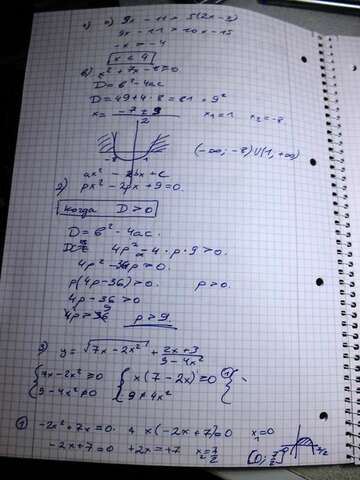 1) a) 9x - 11 > 5(2x - 3)
9x - 11 > 10x - 15
-x > -4
x < 4
в) x² + 7x - 8 > 0
D = в² - 4ac
D = 49 + 4·8 = 81 = 9²
x = (-7 ± 9)/2 x₁ = 1 x₂ = -8
-8 1 (-∞; -8) U (1, +∞)
ax² - 2bx + c
2) px² - 2px + 9 = 0.
когда D > 0
D = в² - 4ac.
4p² - 4·p·9 > 0.
4p² - 36p > 0.
p(4p - 36) > 0. p > 0.
4p - 36 > 0
4p > 36 p > 9.
3) y = √(7x - 2x²) + (2x + 3)/(9 - 4x²)
{7x - 2x² ≥ 0 {x(7 - 2x) = 0 {①
9 - 4x² ≠ 0 9 ≠ 4x²
① -2x² + 7x = 0. x(-2x + 7) = 0 x₁ = 0
-2x + 7 = 0 +2x = +7 x₂ = 7/2 [0; 7/2]